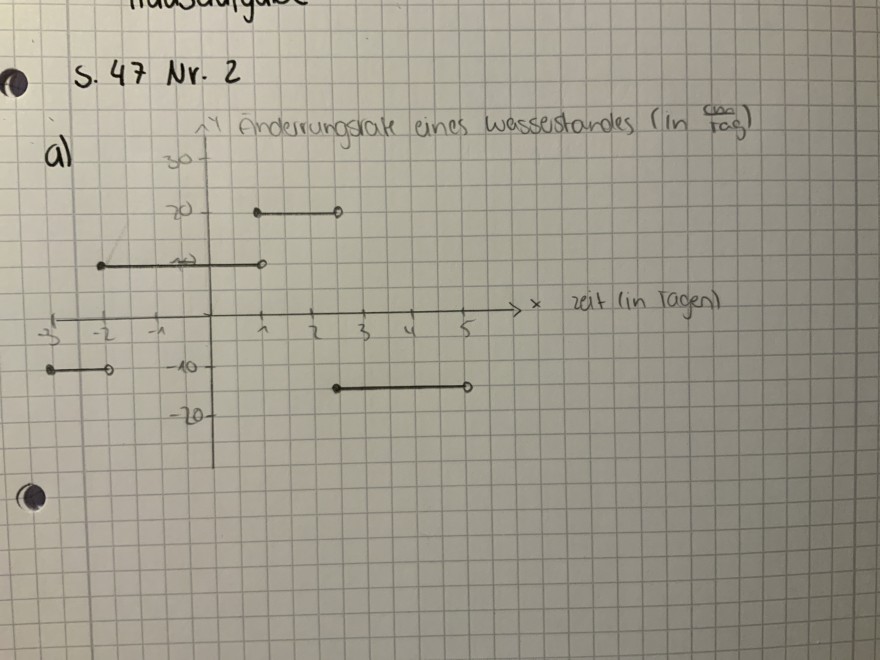 Hausaufgabe
S. 47 Nr. 2
a)
Y Änderrungsrate eines Wasserstandes (in cm/Tag)
30
20
10
x zeit (in Tagen)
-3 -2 -1 1 2 3 4 5
-10
-20